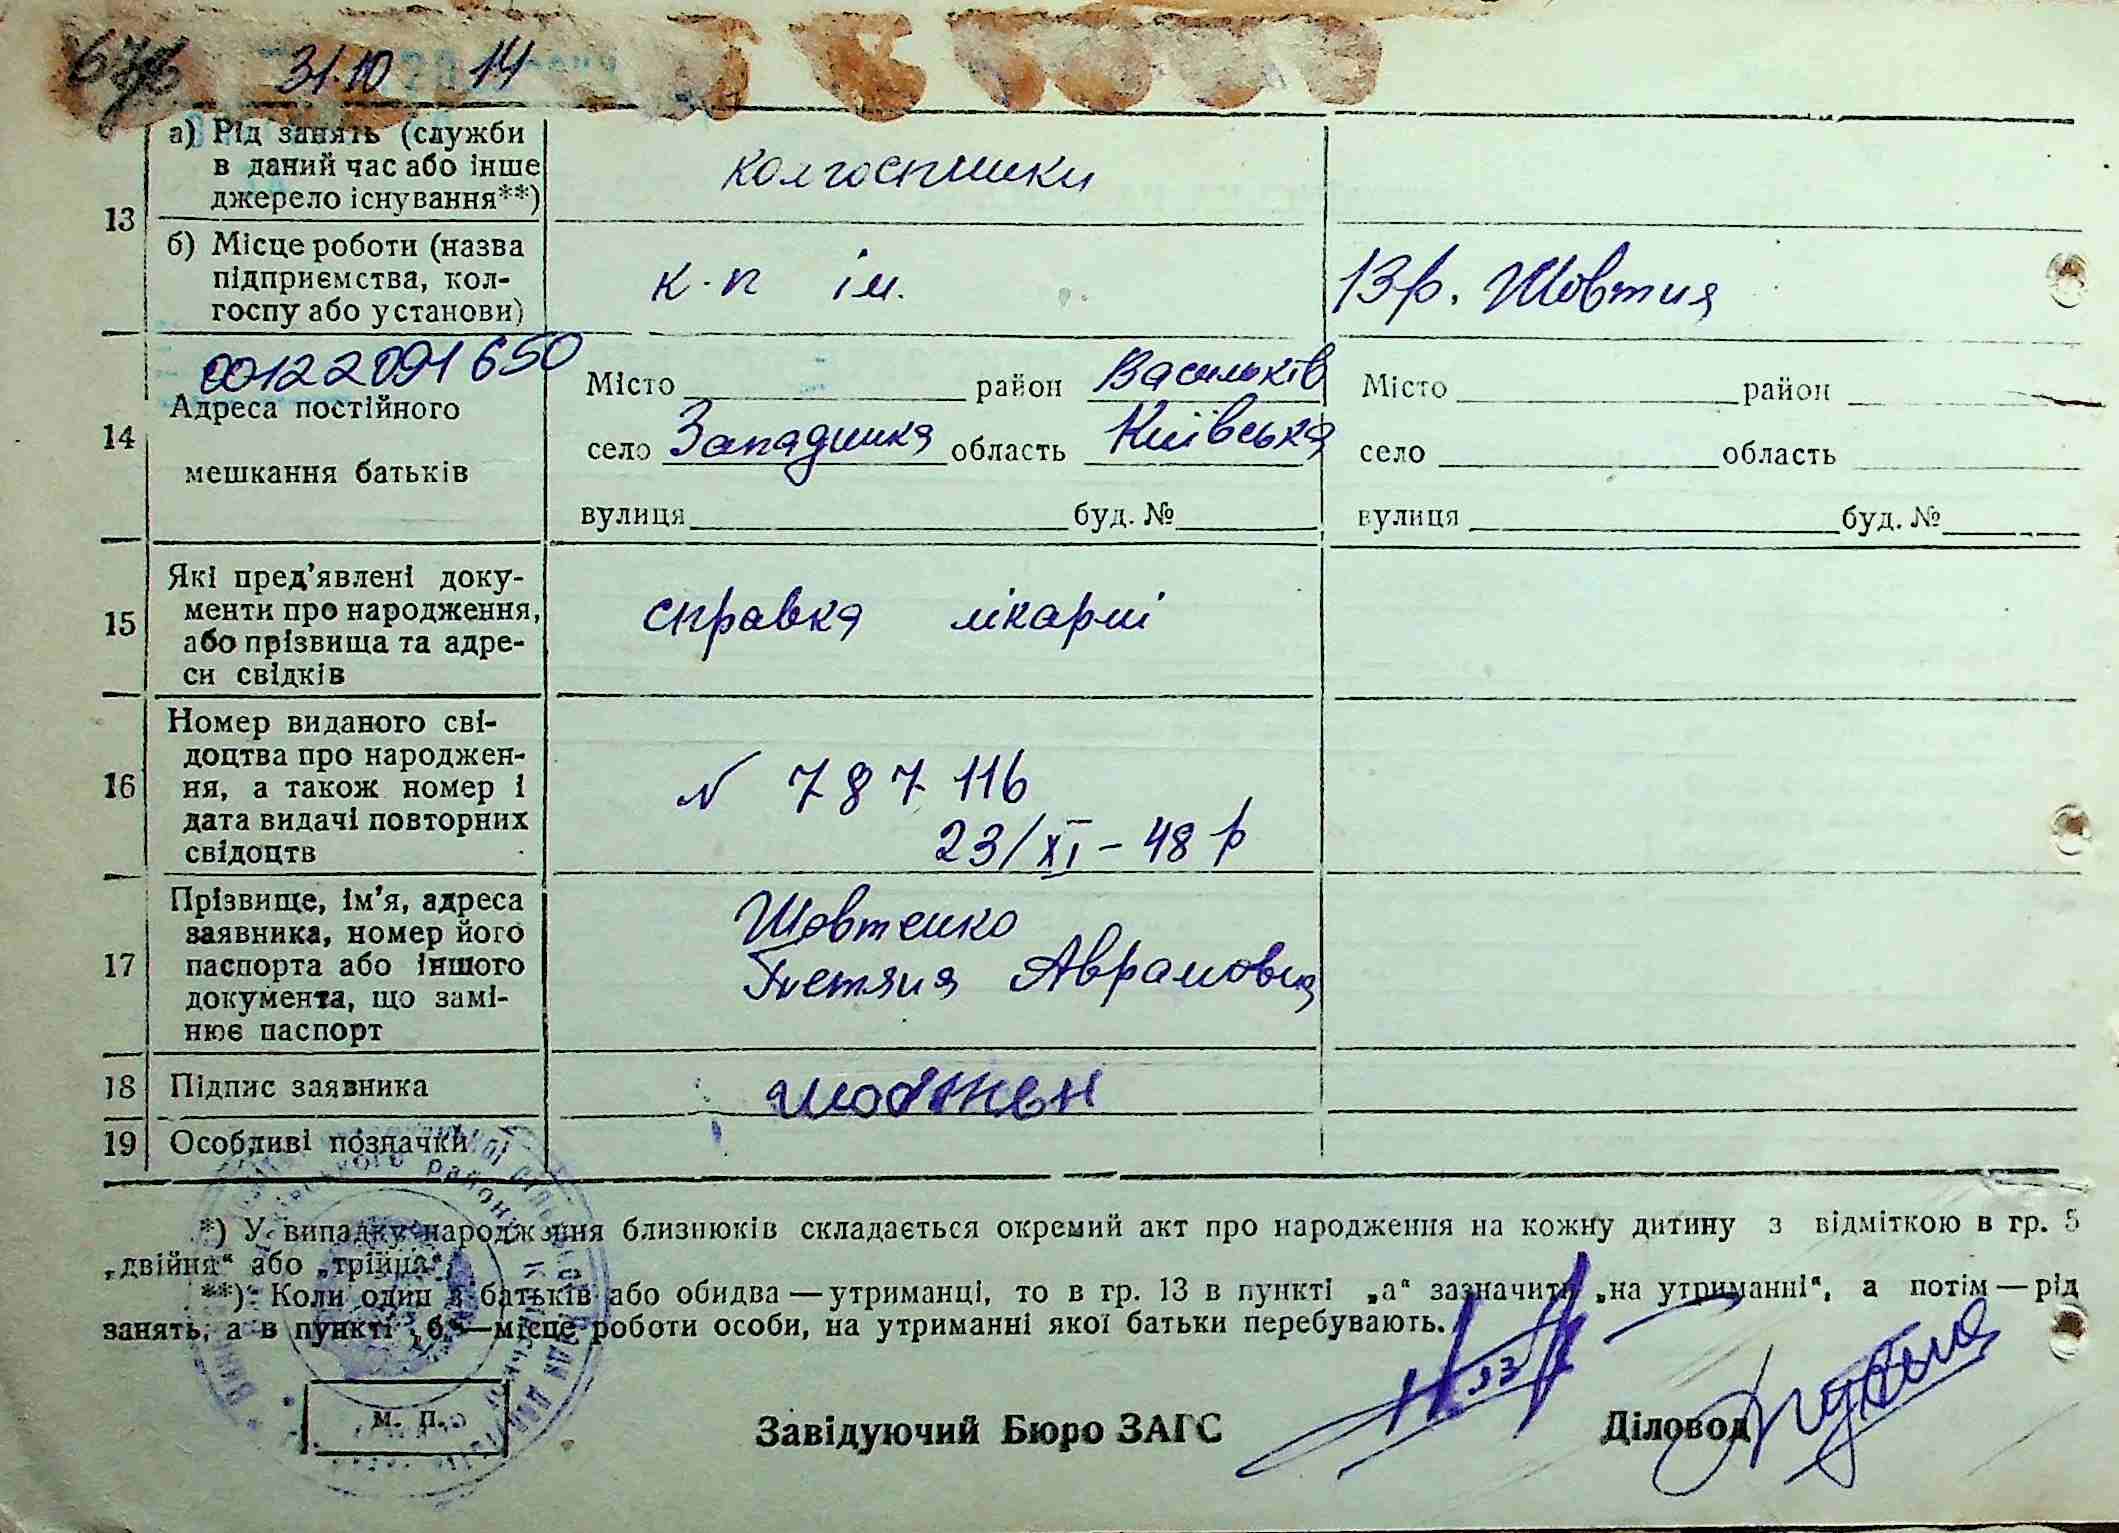 31.10 14
а) Рід занять (служби
в даний час або інше
джерело існування**)
колгоспники
13
б) Місце роботи (назва
підприємства, кол-
госпу або установи)
к-п ім. 13 р. Жовтня
00122091650
14
Адреса постійного
мешкання батьків
Місто район Васильків
село Западинка область Київська
вулиця буд. №
Місто район
село область
вулиця буд. №
15
Які пред’явлені доку-
менти про народження,
або прізвища та адре-
си свідків
справка лікарні
16
Номер виданого сві-
доцтва про народжен-
ня, а також номер і
дата видачі повторних
свідоцтв
N 787116
23/XI-48 р
17
Прізвище, ім’я, адреса
заявника, номер його
паспорта або іншого
документа, що замі-
нює паспорт
Шовтенко
Тетяна Аврамовна
18 Підпис заявника
Шовтен
19 Особливі позначки
*) У випадку народження близнюків складається окремий акт про народження на кожну дитину з відміткою в гр. 5
„двійня“ або „трійня“.
**) Коли один з батьків або обидва — утриманці, то в гр. 13 в пункті „а“ зазначити „на утриманні“, а потім — рід
занять, а в пункті „б“ — місце роботи особи, на утриманні якої батьки перебувають.
М. П.
Завідуючий Бюро ЗАГС
Діловод